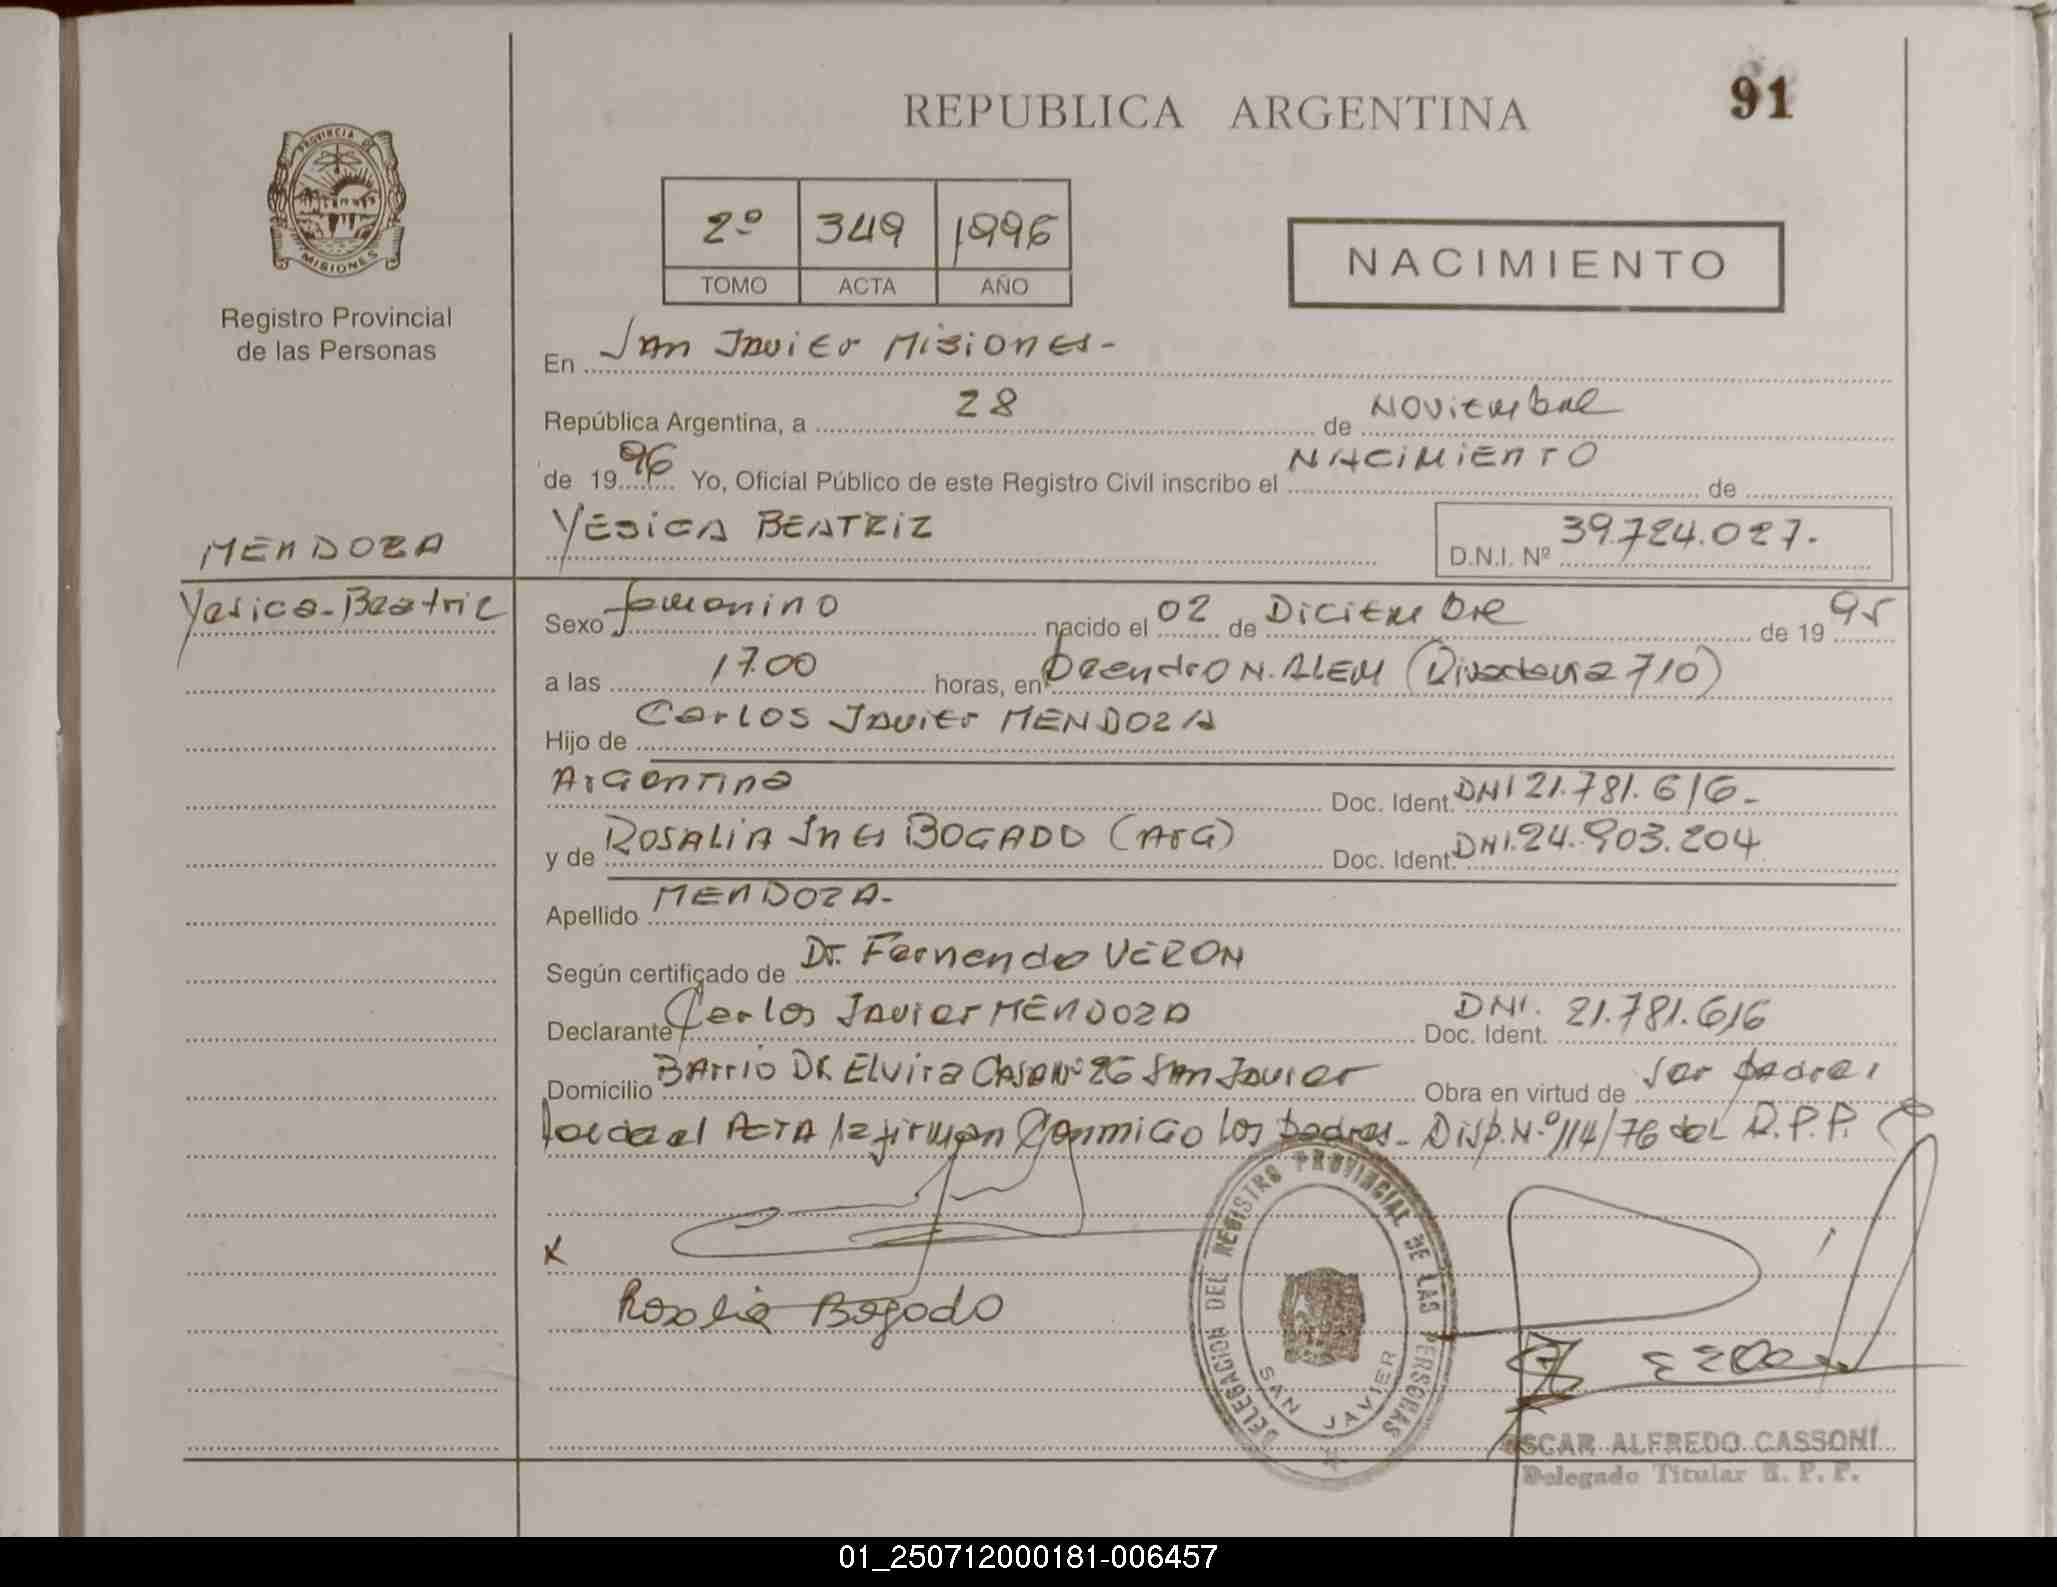 REPUBLICA ARGENTINA
91
PROVINCIA DE
MISIONES
Registro Provincial
de las Personas
2º 349 1996
TOMO ACTA AÑO
NACIMIENTO
En San Javier Misiones-
República Argentina, a 28 de Noviembre
de 1996 Yo, Oficial Público de este Registro Civil inscribo el NACIMIENTO de
YESICA BEATRIZ
D.N.I. Nº 39.724.027.
MENDOZA
Yesica-Beatriz
Sexo femenino nacido el 02 de Diciembre de 1995
a las 17.00 horas, en Leandro N. ALEM (Rivadavia 710)
Hijo de Carlos Javier MENDOZA
Argentina Doc. Ident. DNI 21.781.616-
y de ROSALIA Ines BOGADO (ArG) Doc. Ident. DNI.24.903.204
Apellido MENDOZA-
Según certificado de Dr. Fernando VERON
Declarante Carlos Javier MENDOZA Doc. Ident. DNI. 21.781.616
Domicilio BArrio Dr Elvira Casa Nº 26 San Javier Obra en virtud de ser padre,
Leida el ACTA la firman Conmigo los padres- Disp. N.º 114/76 del R.P.P.
X
Rosalia Bogado
DELEGACION DEL REGISTRO PROVINCIAL DE LAS PERSONAS
SAN JAVIER
OSCAR ALFREDO CASSONI
Delegado Titular R. P. P.
01_250712000181-006457